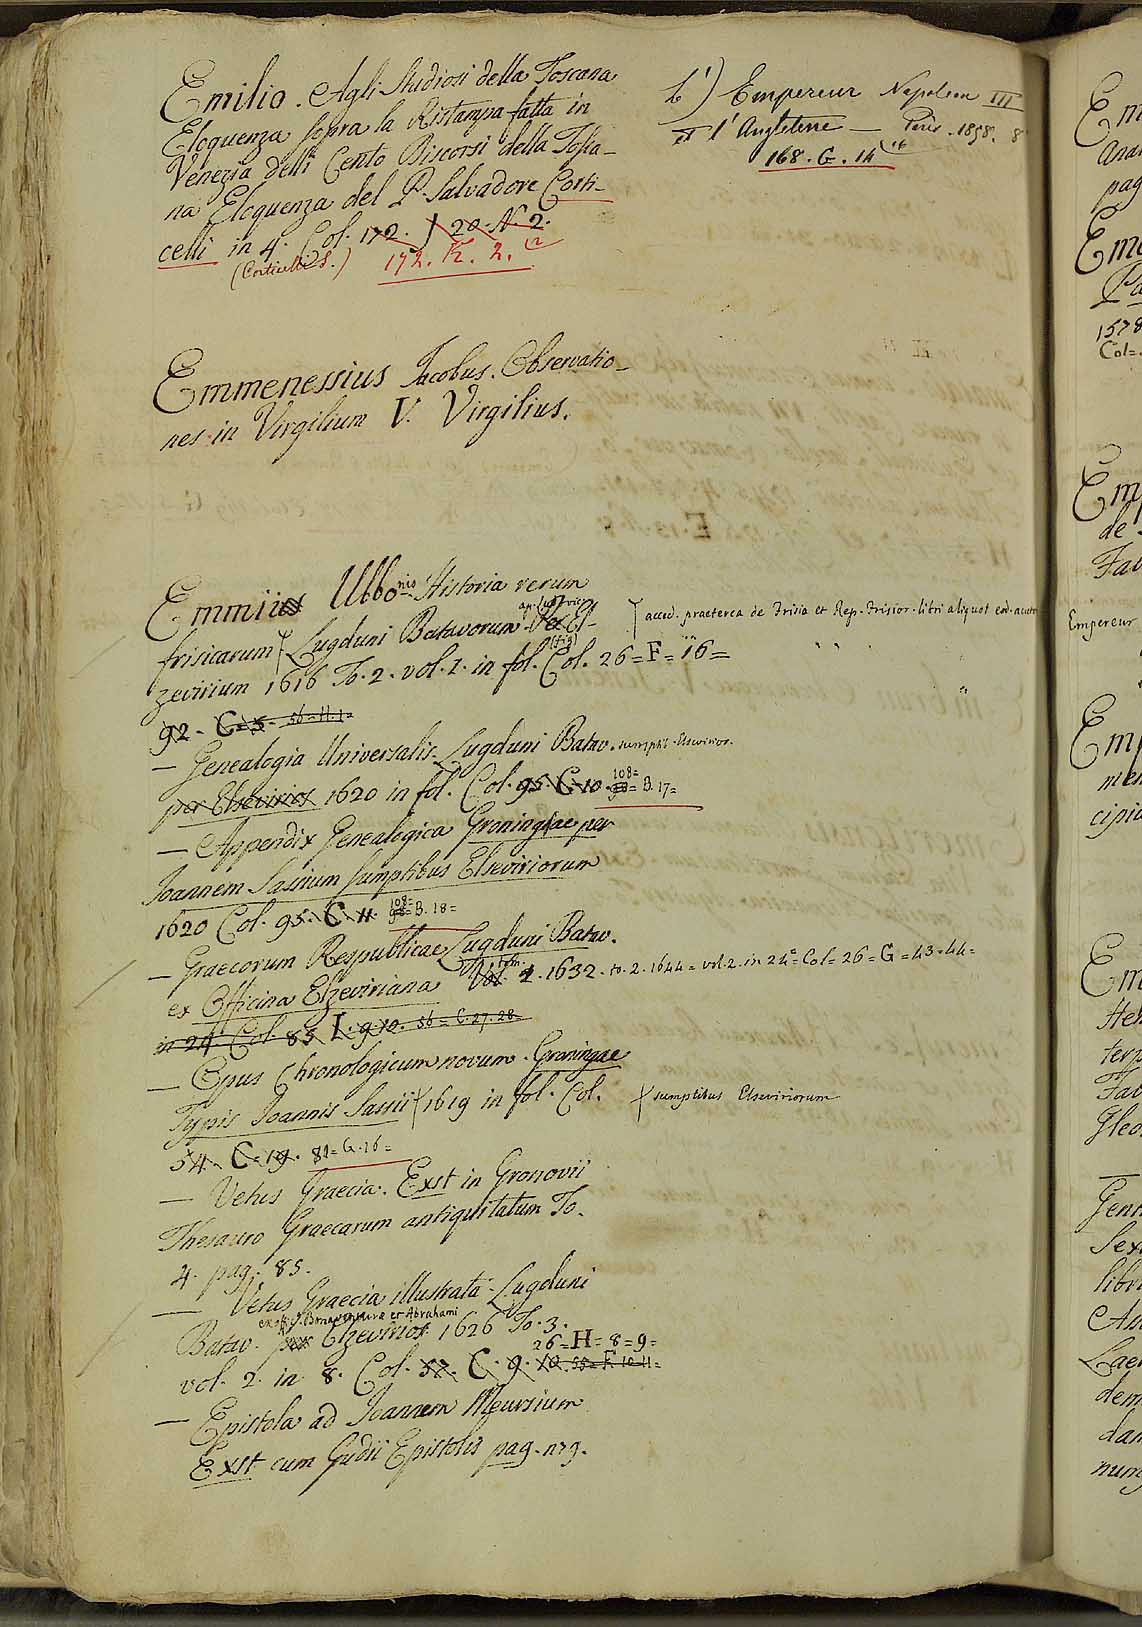 Emilio. Agli Studiosi della Toscana
Eloquenza sopra la Ristampa fatta in
Venezia delli Cento Discorsi della Tosca-
na Eloquenza del P. Salvadore Corti-
celli in 4. Col. 172. J 20. N. 2.
(Corticelli S.) 172. K. 2. (2
L') Empereur Napoleon III
et l'Angleterre — Paris. 1858. 8
168. G. 14 (16
Emmenessius Jacobus. Observatio-
nes in Virgilium V. Virgilius.
Emmii Ubbonis Historia rerum
frisicarum Lugduni Batavorum ap. Lud. Per El-
zevirium 1616 To. 2. vol. 1. in fol. (fig) Col. 26=F=16=
accid. praeterea de Frisia et Rep. Frisior. libri aliquot eod. auct.
92. C=5. 56=H.1=
— Genealogia Universalis. Lugduni Batav. sumptib. Elsevirior.
per Elsevirios 1620 in fol. Col. 95. C. 10. 108= 98= B. 17=
— Appendix Genealogica Groningae per
Joannem Sassium sumptibus Elseviriorum
1620 Col. 95. C 11. 108= 98= B. 18=
— Graecorum Respublicae Lugduni Batav.
ex Officina Elzeviriana Vol. tom. 2. 1632. to. 2. 1644= vol. 2. in 24°= Col= 26= G= 43=44=
in 24 Col. 85 I. 9 10. 56= C. 27. 28=
— Opus Chronologicum novum. Groningae
Typis Joannis Sassii 1619 in fol. Col. sumptibus Elseviriorum
54. C=19. 81= G. 16=
— Vetus Graecia. Exst in Gronovii
Thesauro Graecarum antiquitatum To.
4. pag. 85.
— Vetus Graecia illustrata. Lugduni
ex off. Bonaventura et Abrahami
Batav. per Elzevirios 1626 To. 3.
26=H=8=9=
vol. 2. in 8. Col. 52. C. 9. 10. 55= F. 10. 11=
— Epistola ad Joannem Meursium
Exst cum Gudii Epistolis pag.
Em
pag
1578
Col=
de
Empereur
cipia
Gleo
Sex
libr
dem